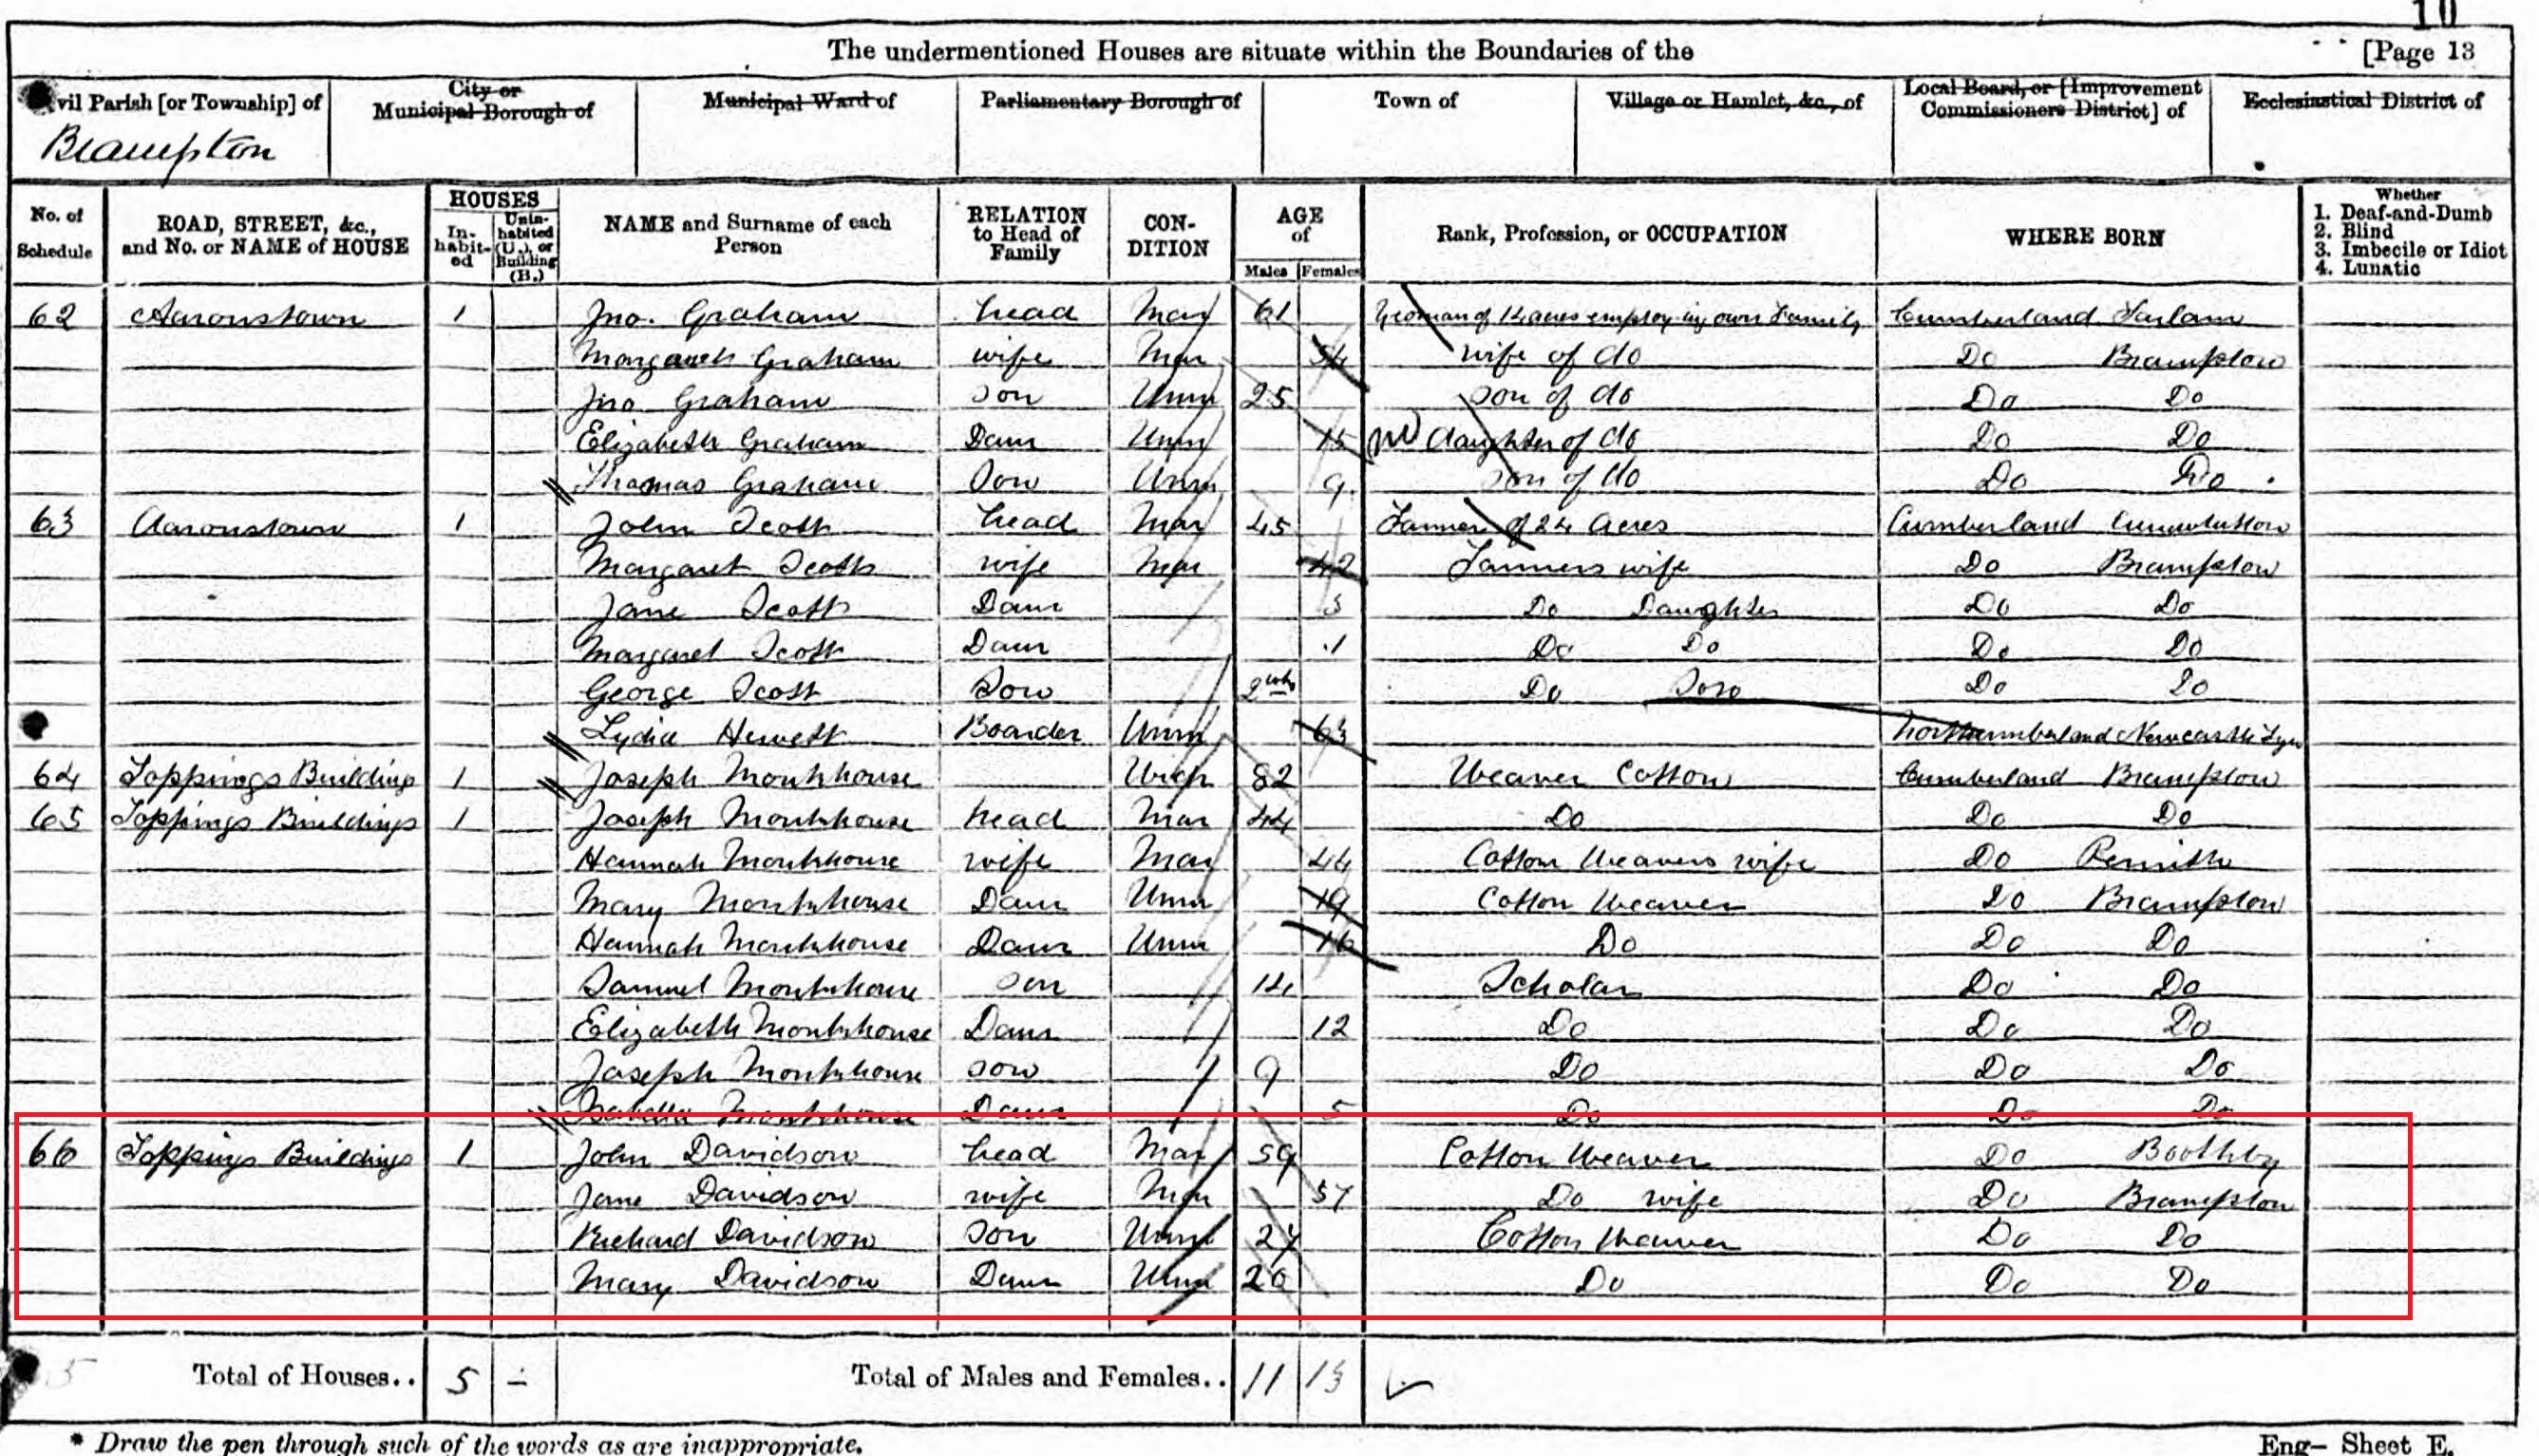 10
The undermentioned Houses are situate within the Boundaries of the [Page 13
vil Parish [or Township] of City or Municipal Borough of Municipal Ward of Parliamentary Borough of Town of Village or Hamlet, &c., of Local Board, or [Improvement Commissioners District] of Ecclesiastical District of
Brampton
No. of Schedule ROAD, STREET, &c., and No. or NAME of HOUSE HOUSES In-habit-ed Unin-habited (U.), or Building (B.) NAME and Surname of each Person RELATION to Head of Family CON-DITION AGE of Males Females Rank, Profession, or OCCUPATION WHERE BORN Whether 1. Deaf-and-Dumb 2. Blind 3. Imbecile or Idiot 4. Lunatic
62 Aaronstown 1 Jno. Graham head Mar 61 Yeoman of 14 acres employing own Family Cumberland Farlam
Margaret Graham wife Mar 54 wife of do Do Brampton
Jno Graham Son Unm 25 Son of do Do Do
Elizabeth Graham Daur Unm 15 daughter of do Do Do
Thomas Graham Son Unm 9 Son of do Do Do
63 Aaronstown 1 John Scott head Mar 45 Farmer of 24 Acres Cumberland
Margaret Scott wife Mar 42 Farmers wife Do Brampton
Jane Scott Daur 3 Do Daughter Do Do
Margaret Scott Daur 1 Do Do Do Do
George Scott Son 2 wks Do Son Do Do
Lydia Hewett Boarder Unm 63 Northumberland Newcastle Tyne
64 Toppings Buildings 1 Joseph Monkhouse 82 Weaver Cotton Cumberland Brampton
65 Toppings Buildings 1 Joseph Monkhouse head Mar 44 Do Do Do
Hannah Monkhouse wife Mar 44 Cotton Weavers wife Do Penrith
Mary Monkhouse Daur Unm 19 Cotton Weaver Do Brampton
Hannah Monkhouse Daur Unm 16 Do Do Do
Samuel Monkhouse Son 14 Scholar Do Do
Elizabeth Monkhouse Daur 12 Do Do Do
Joseph Monkhouse Son 9 Do Do Do
Isabella Monkhouse Daur 5 Do Do Do
66 Toppings Buildings 1 John Davidson head Mar 59 Cotton Weaver Do Boothby
Jane Davidson wife Mar 57 Do wife Do Brampton
Richard Davidson Son Unm 24 Cotton Weaver Do Do
Mary Davidson Daur Unm 20 Do Do Do
Total of Houses.. 5 – Total of Males and Females.. 11 13
* Draw the pen through such of the words as are inappropriate.
Eng– Sheet E.